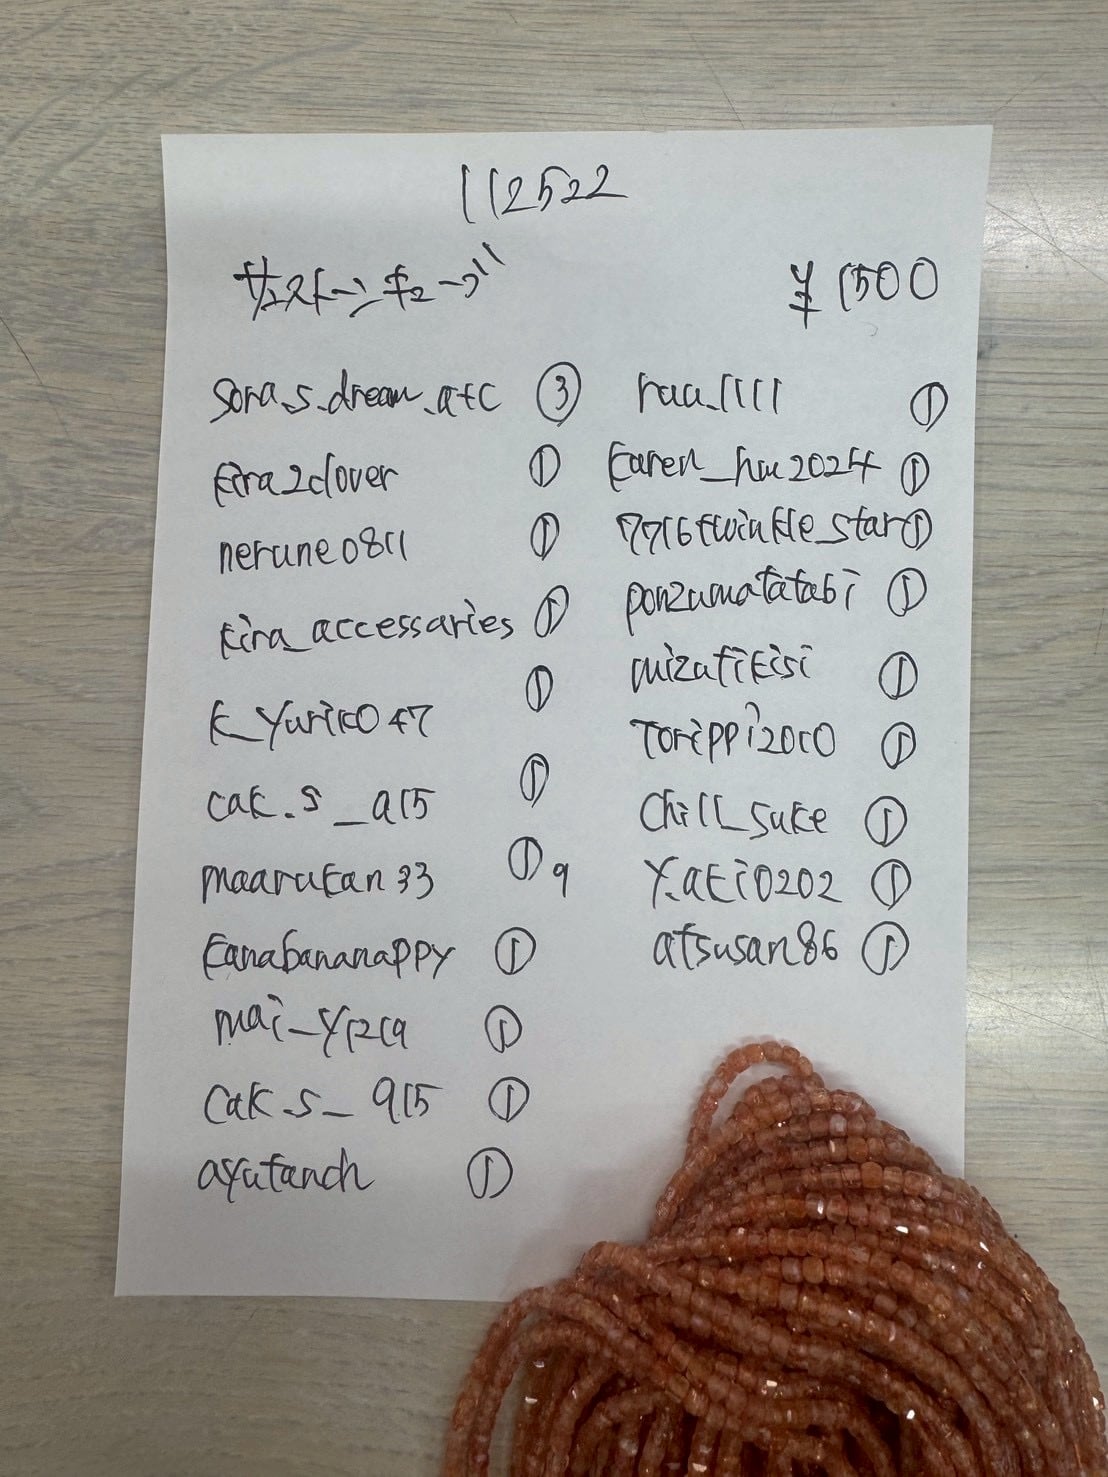 112522
サンストーンキューブ
¥1500
sora.s.dream.atc ③
kira2clover ①
nerune0811 ①
kira_accessaries ①
k_yuriko47 ①
cak.s_915 ①
maarukan33 ① 9
kanabananappy ①
mai_y1219 ①
cak.s_915 ①
ayutanch ①
raa.1111 ①
karen_hu2024 ①
7716twinkle_star ①
ponzumatatabi ①
mizutikisi ①
torippi2010 ①
chill_suke ①
y.aki0202 ①
atsusan86 ①